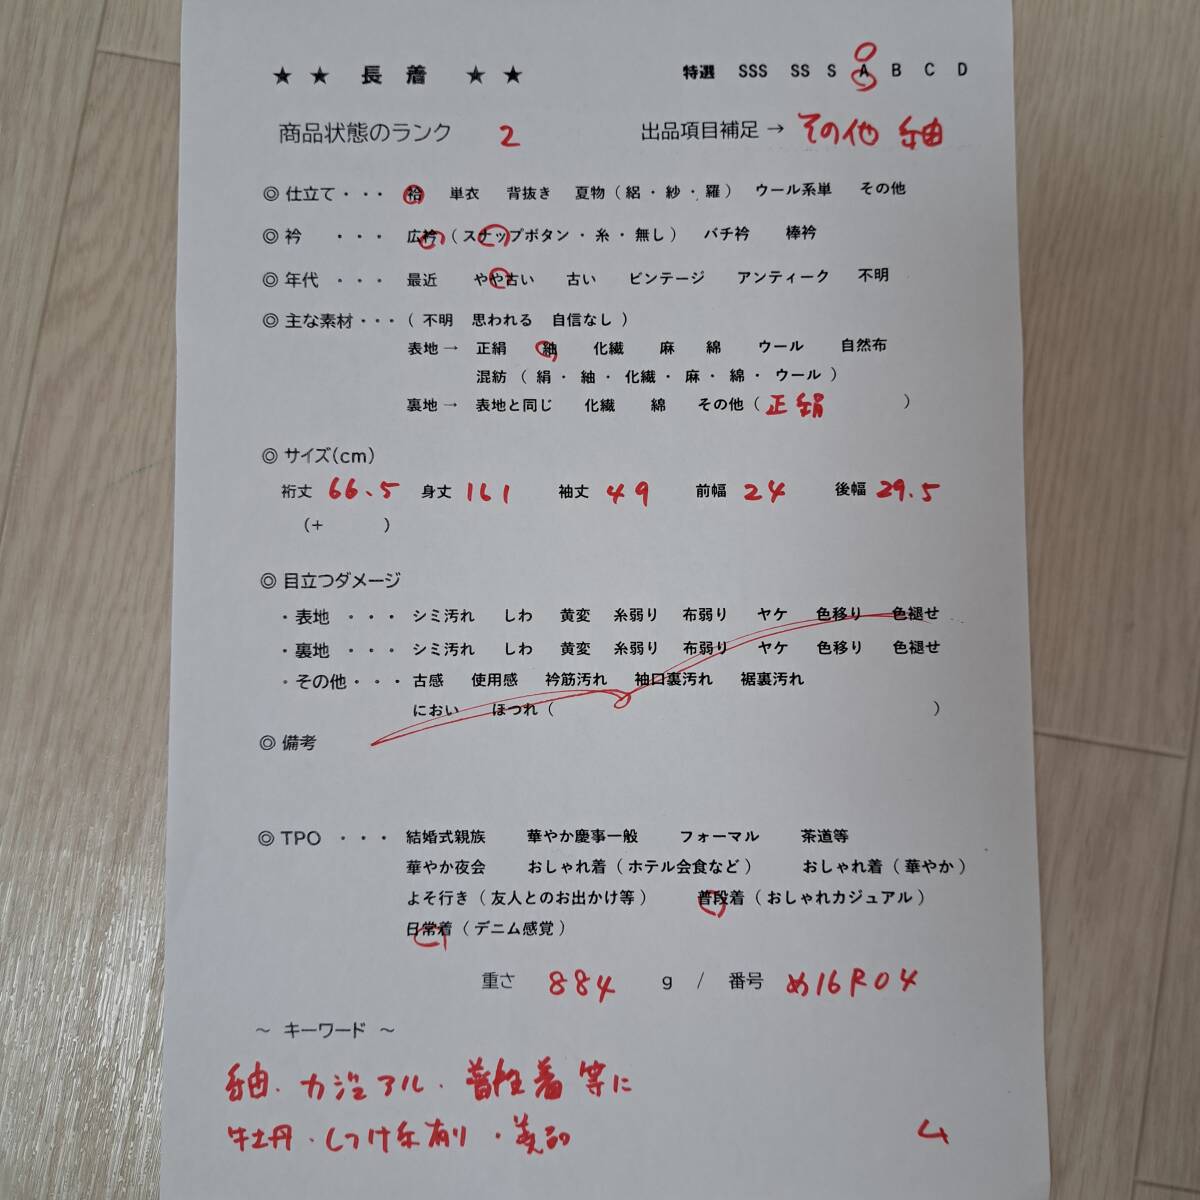 ★ ★ 長 着 ★ ★ 特選 SSS SS S A B C D
商品状態のランク 2 出品項目補足 → その他 紬
◎ 仕立て・・・ 袷 単衣 背抜き 夏物 ( 絽 ・ 紗 ・ 羅 ) ウール系単 その他
◎ 衿 ・・・ 広衿 ( スナップボタン ・ 糸 ・ 無し ) バチ衿 棒衿
◎ 年代 ・・・ 最近 やや古い 古い ビンテージ アンティーク 不明
◎ 主な素材・・・ ( 不明 思われる 自信なし )
表地 → 正絹 紬 化繊 麻 綿 ウール 自然布
混紡 ( 絹 ・ 紬 ・ 化繊 ・ 麻 ・ 綿 ・ ウール )
裏地 → 表地と同じ 化繊 綿 その他 ( 正絹 )
◎ サイズ(cm)
裄丈 66.5 身丈 161 袖丈 49 前幅 24 後幅 29.5
(+ )
◎ 目立つダメージ
・表地 ・・・ シミ汚れ しわ 黄変 糸弱り 布弱り ヤケ 色移り 色褪せ
・裏地 ・・・ シミ汚れ しわ 黄変 糸弱り 布弱り ヤケ 色移り 色褪せ
・その他・・・ 古感 使用感 衿筋汚れ 袖口裏汚れ 裾裏汚れ
におい ほつれ ( )
◎ 備考
◎ TPO ・・・ 結婚式親族 華やか慶事一般 フォーマル 茶道等
華やか夜会 おしゃれ着 ( ホテル会食など ) おしゃれ着 ( 華やか )
よそ行き ( 友人とのお出かけ等 ) 普段着 ( おしゃれカジュアル )
日常着 ( デニム感覚 )
重さ 884 g / 番号 め16R04
~ キーワード ~
紬・カジュアル・普段着等に
牡丹・しつけ糸有り・美品 ム